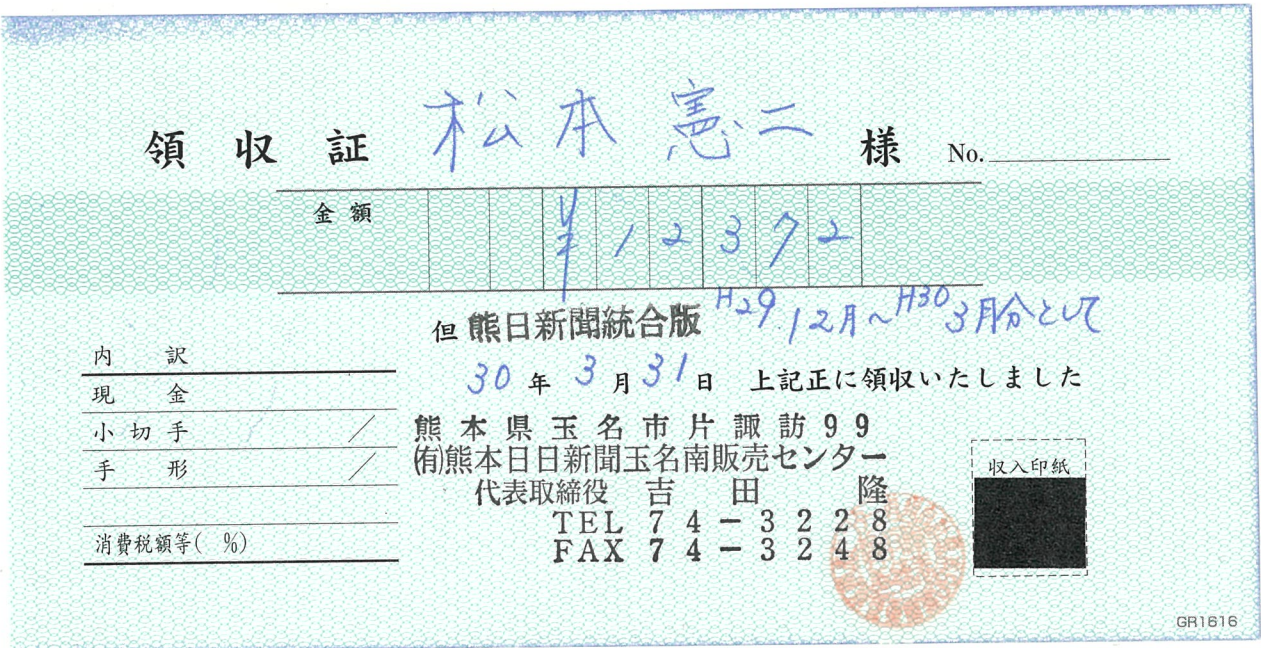 領収証 松本憲二 様 No.
金額 ¥12372
但 熊日新聞統合版 H29.12月~H30 3月分として
30年3月31日 上記正に領収いたしました
内訳
現金
小切手 /
手形 /
消費税額等( %)
熊本県玉名市片諏訪99
(有)熊本日日新聞玉名南販売センター
代表取締役 吉田 隆
TEL 74-3228
FAX 74-3248
収入印紙
GR1616